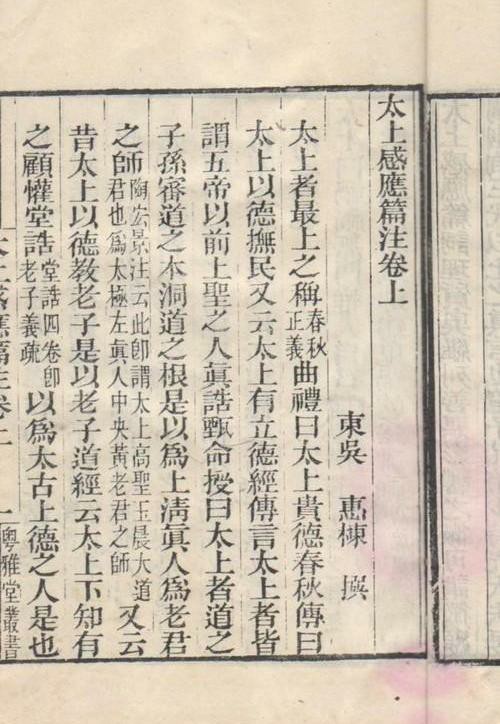 太上感應篇注卷上
東吳 惠棟 撰
太上者最上之稱春秋正義曲禮曰太上貴德春秋傳曰
太上以德撫民又云太上有立德經傳言太上者皆
謂五帝以前上聖之人眞誥甄命授曰太上者道之
子孫審道之本洞道之根是以爲上淸眞人爲老君
之師陶宏景注云此卽謂太上高聖王晨大道君也爲太極左眞人中央黃老君之師又云
昔太上以德敎老子是以老子道經云太上下知有
之顧懽堂誥堂誥四卷卽老子義疏以爲太古上德之人是也
太上感應篇注卷上 一 粵雅堂叢書